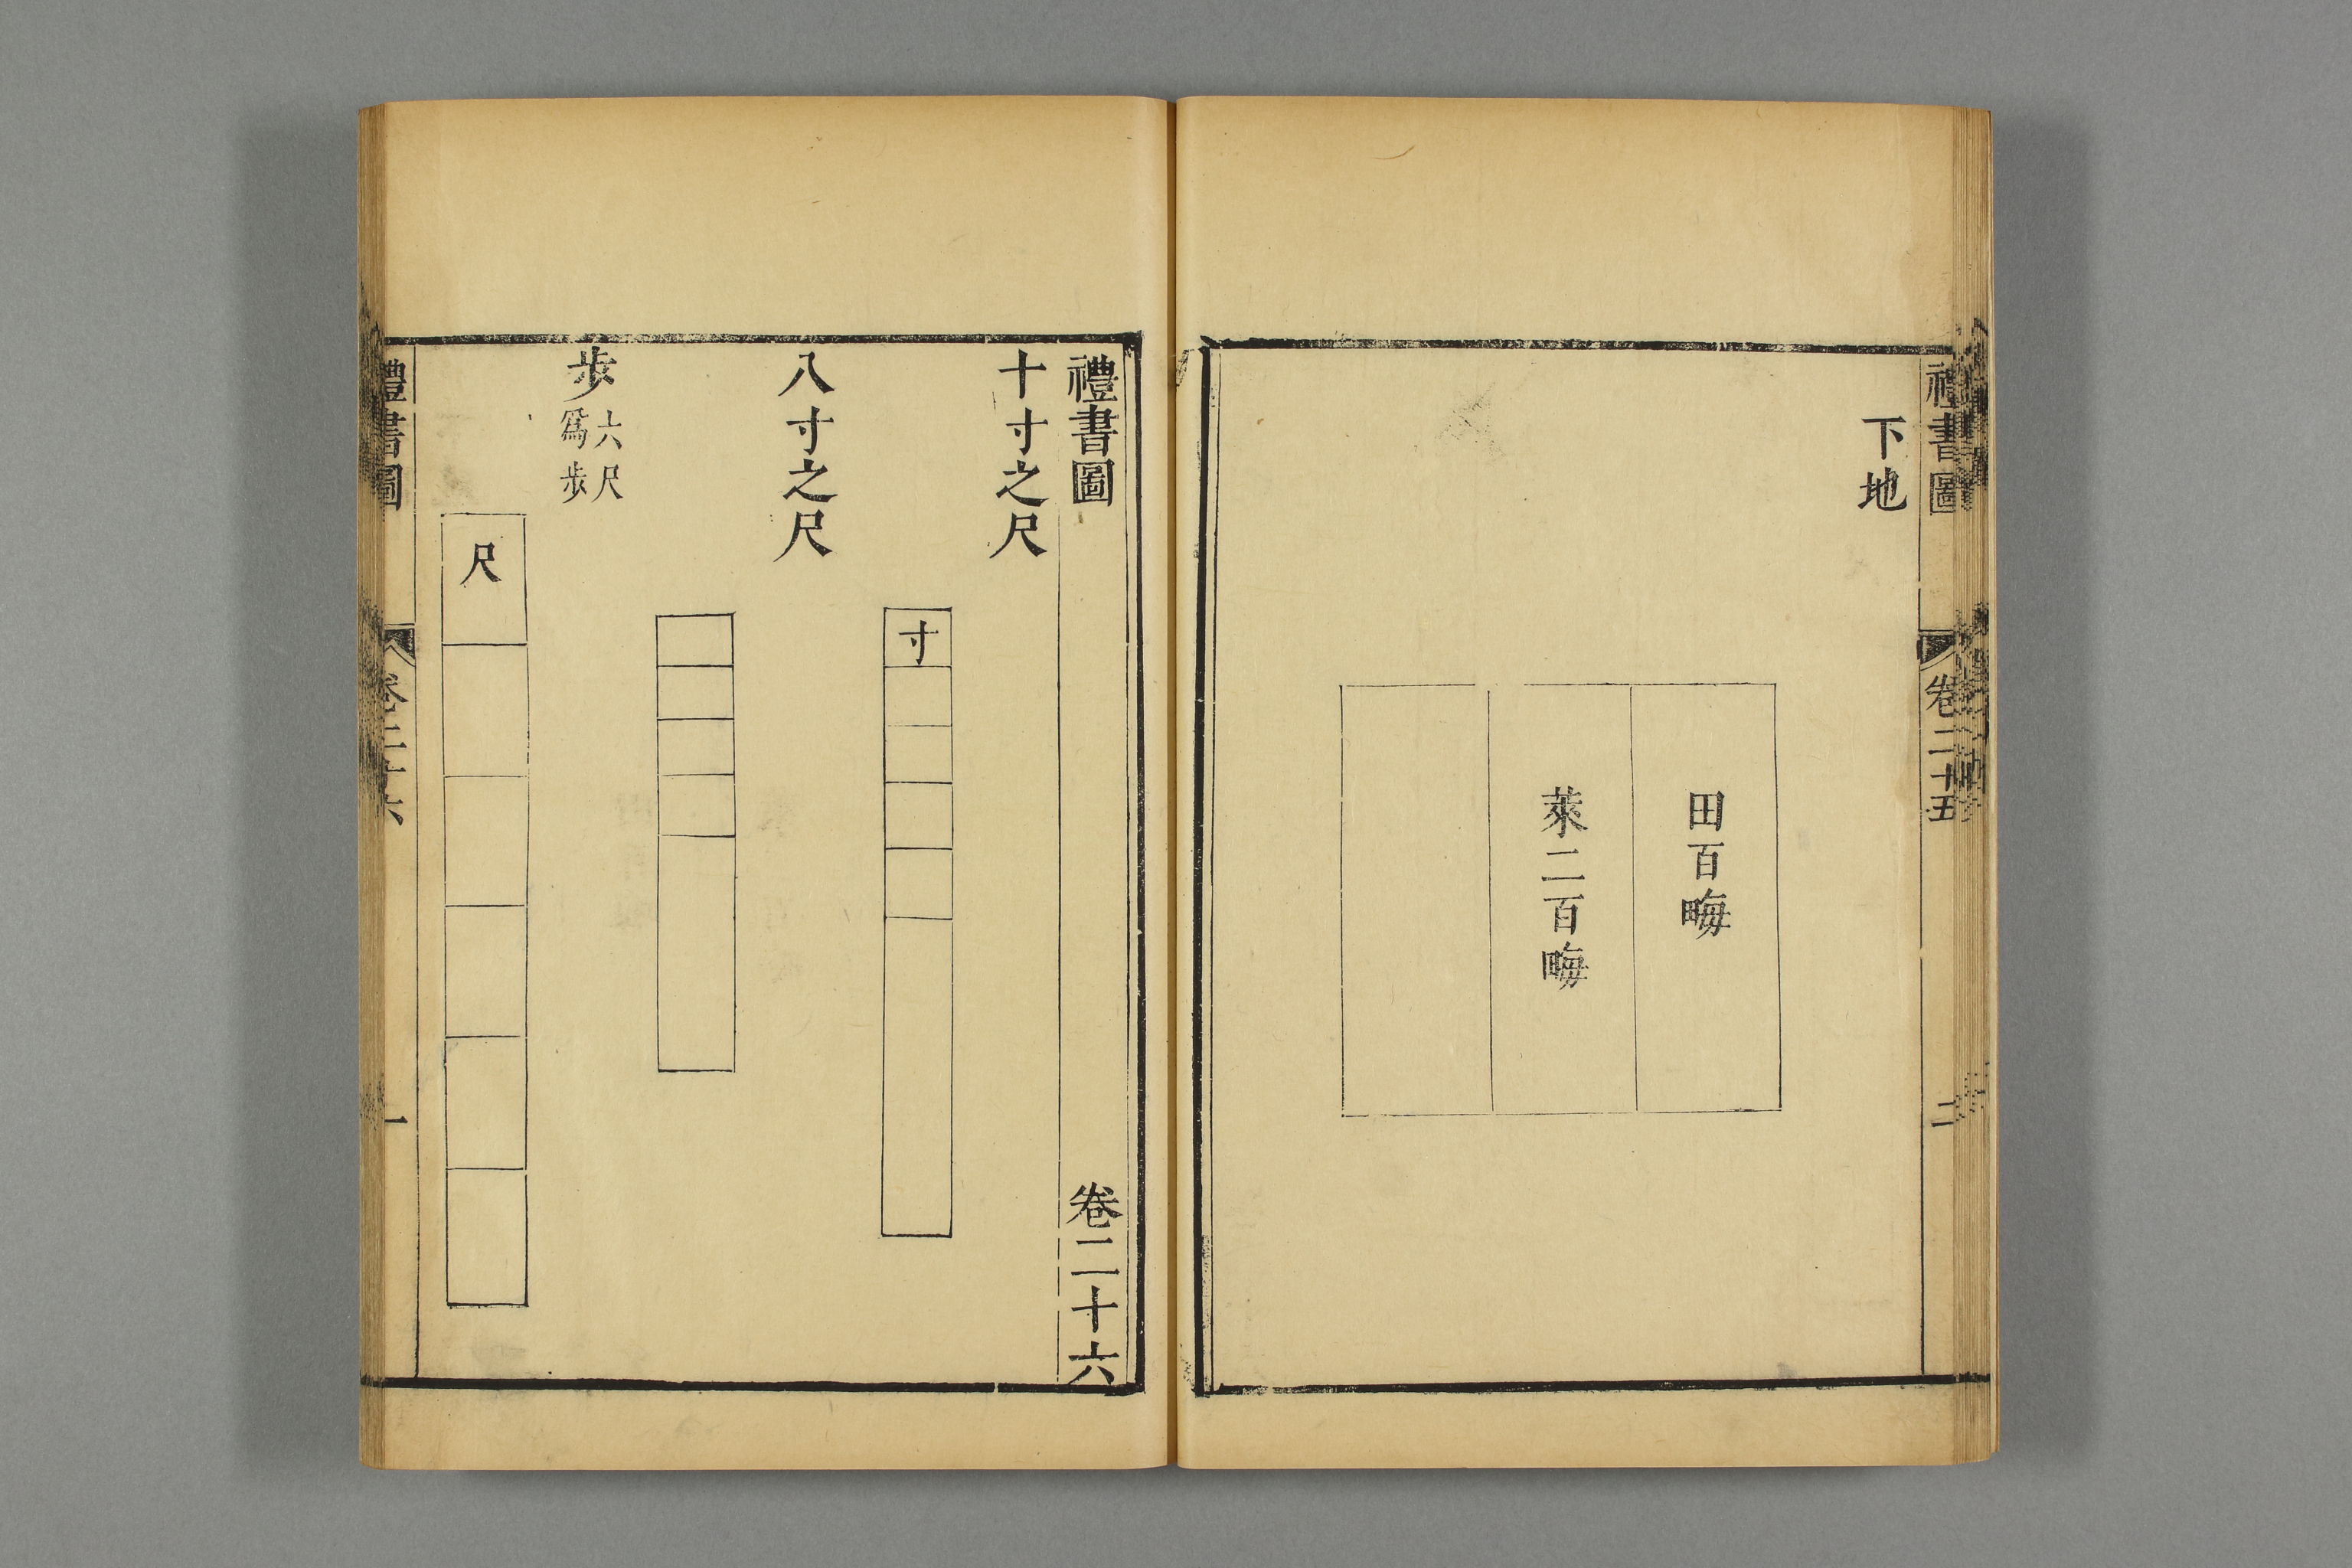 禮書圖 卷二十五 二
下地
田百畮
萊二百畮
禮書圖 卷二十六
十寸之尺
寸
八寸之尺
步 六尺
爲步
尺
禮書圖 卷二十六 一